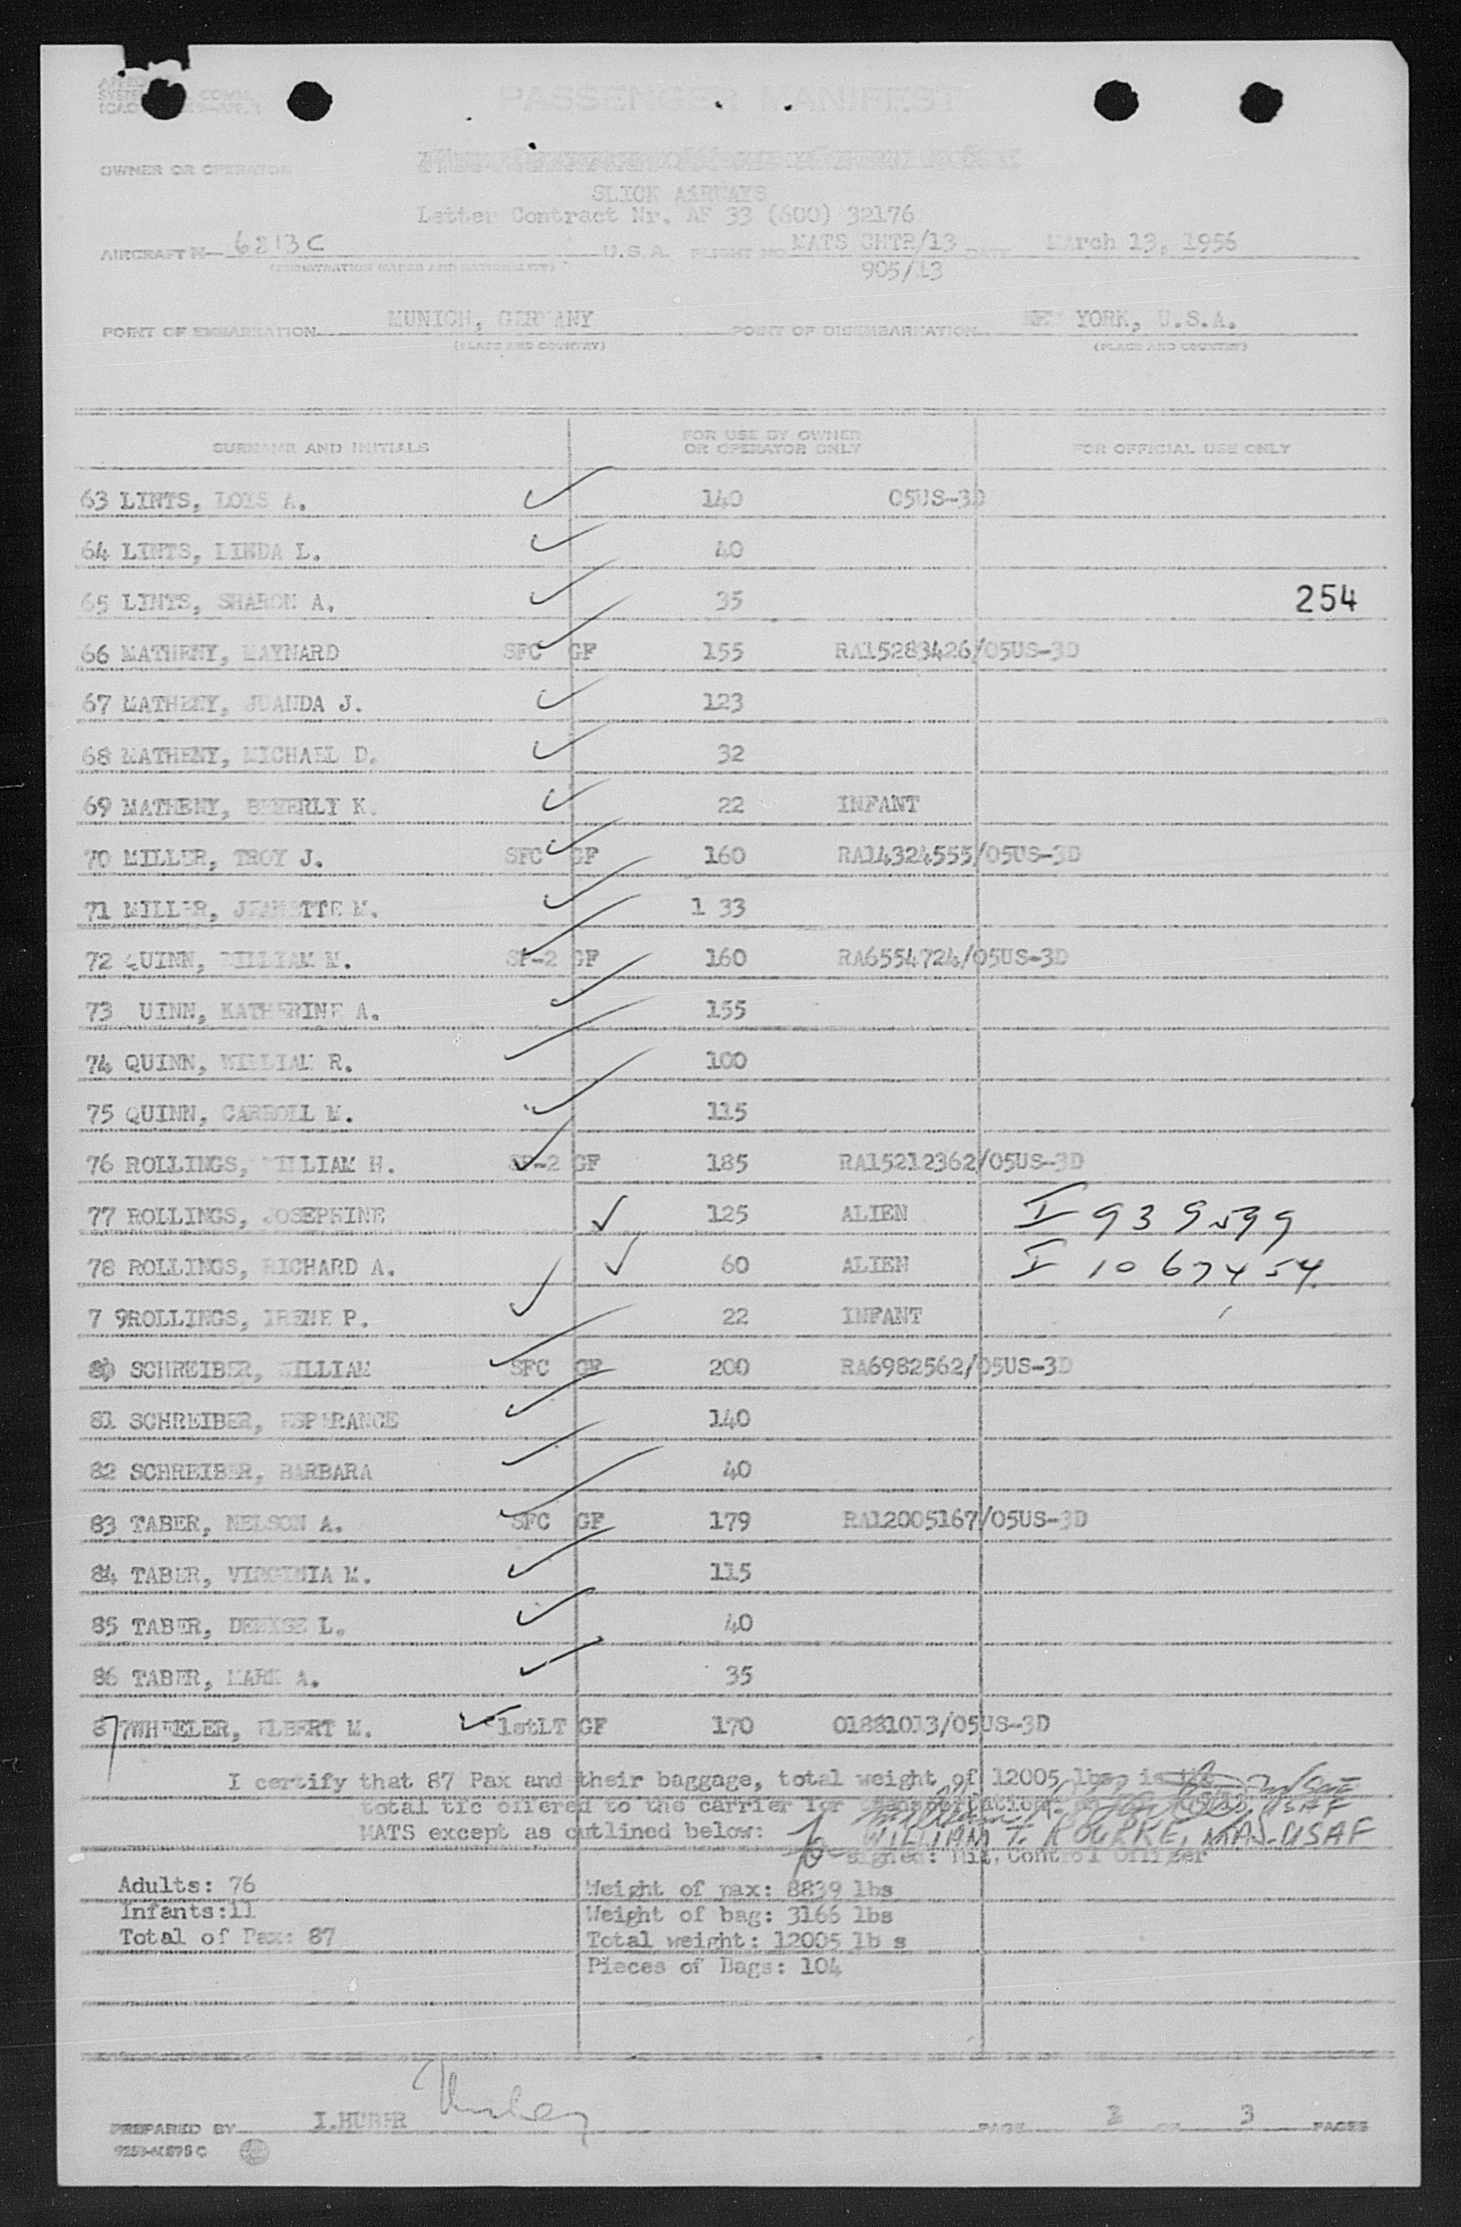 PASSENGER MANIFEST
OWNER OR OPERATOR
SLICK AIRWAYS
Letter Contract Nr. AF 33 (600) 32176
AIRCRAFT N— 6813C U.S.A. FLIGHT NO. MATS CHTR/13 DATE March 13, 1956
905/13
POINT OF EMBARKATION MUNICH, GERMANY POINT OF DISEMBARKATION NEW YORK, U.S.A.
(PLACE AND COUNTRY) (PLACE AND COUNTRY)
SURNAME AND INITIALS FOR USE BY OWNER OR OPERATOR ONLY FOR OFFICIAL USE ONLY
63 LINTS, LOIS A. ✓ 140 05US-3D
64 LINTS, LINDA L. ✓ 40
65 LINTS, SHARON A. ✓ 35 254
66 MATHENY, MAYNARD SFC ✓ GF 155 RA15283426/05US-3D
67 MATHENY, JUANDA J. ✓ 123
68 MATHENY, MICHAEL D. ✓ 32
69 MATHENY, BEVERLY K. ✓ 22 INFANT
70 MILLER, TROY J. SFC ✓ GF 160 RA14324555/05US-3D
71 MILLER, JEANETTE M. ✓ 1 33
72 QUINN, WILLIAM M. SP-2 ✓ GF 160 RA6554724/05US-3D
73 UINN, KATHERINE A. ✓ 155
74 QUINN, WILLIAM R. ✓ 100
75 QUINN, CARROLL M. ✓ 115
76 ROLLINGS, WILLIAM H. SP-2 ✓ GF 185 RA15212362/05US-3D
77 ROLLINGS, JOSEPHINE ✓ 125 ALIEN I 939599
78 ROLLINGS, RICHARD A. ✓ 60 ALIEN I 1067454
7 9ROLLINGS, IRENE P. ✓ 22 INFANT
80 SCHREIBER, WILLIAM ✓ SFC GF 200 RA6982562/05US-3D
81 SCHREIBER, ESPERANCE ✓ 140
82 SCHREIBER, BARBARA ✓ 40
83 TABER, NELSON A. ✓ SFC GF 179 RA12005167/05US-3D
84 TABER, VIRGINIA M. ✓ 115
85 TABER, DENYSE L. ✓ 40
86 TABER, MARK A. ✓ 35
87WHEELER, ELBERT M. ✓ 1stLT GF 170 01881013/05US-3D
I certify that 87 Pax and their baggage, total weight of 12005 lbs, is the
total tfc offered to the carrier for transportation
MATS except as outlined below: WILLIAM T. ROURKE, MAJ. USAF
Signed: Mil. Control Officer
Adults: 76 Weight of pax: 8839 lbs
Infants:11 Weight of bag: 3166 lbs
Total of Pax: 87 Total weight: 12005 lb s
Pieces of Bags: 104
PREPARED BY I.HUBER Huber PAGE 3 OF 3 PAGES